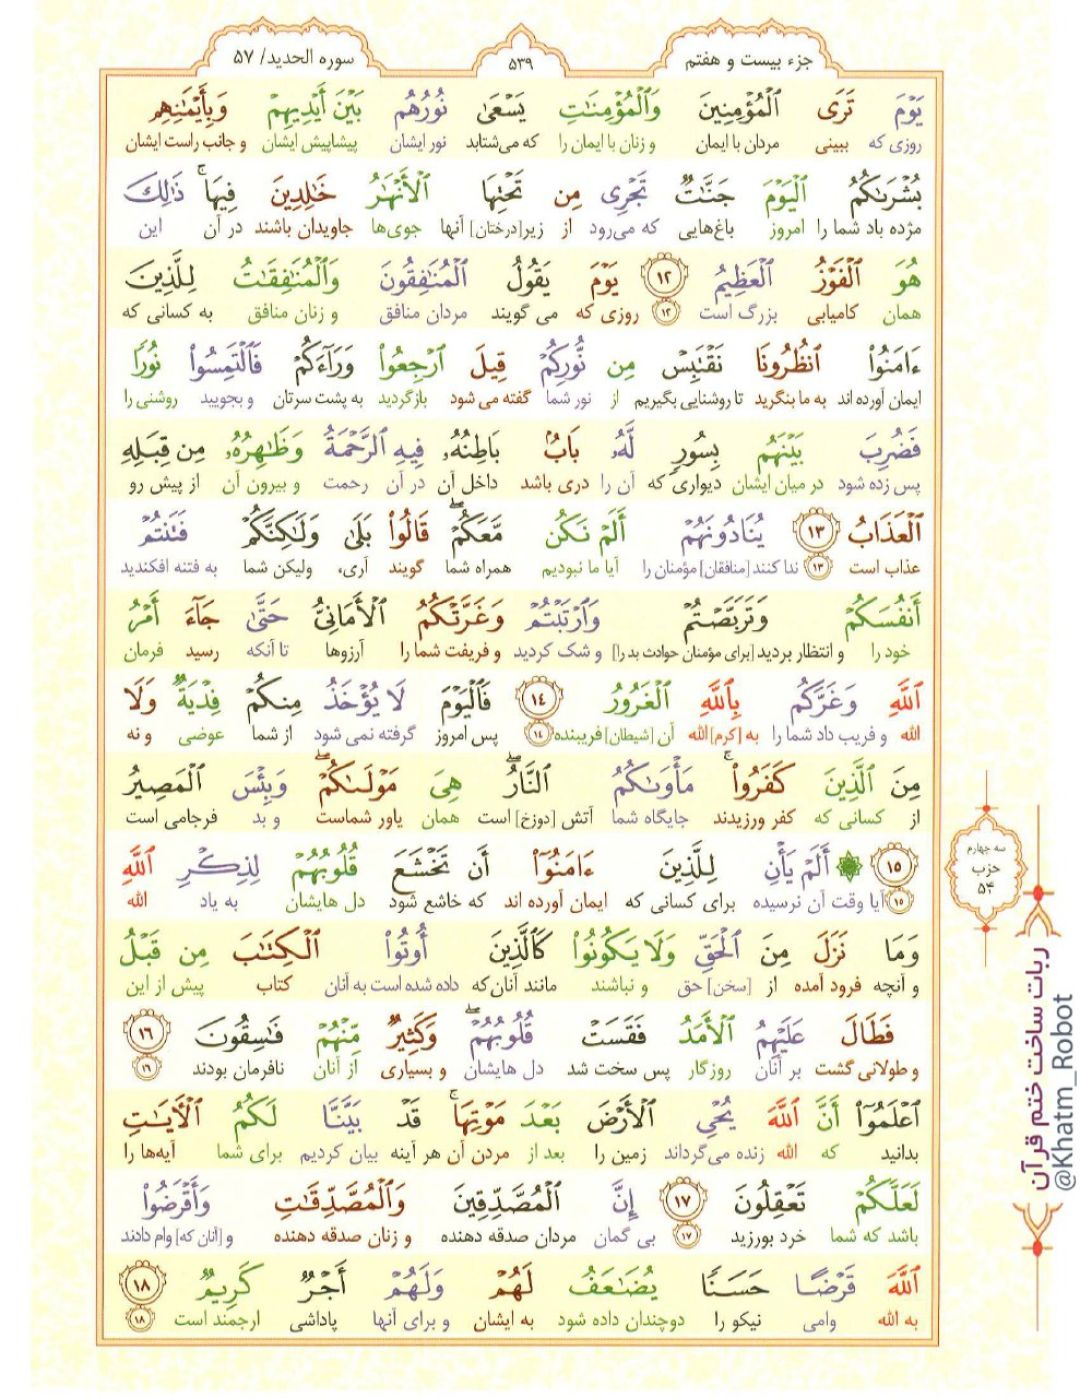 جزء بیست و هفتم
۵۳۹
سوره الحدید/ ۵۷
يَوْمَ تَرَى ٱلْمُؤْمِنِينَ وَٱلْمُؤْمِنَٰتِ يَسْعَىٰ نُورُهُم بَيْنَ أَيْدِيهِمْ وَبِأَيْمَٰنِهِم
روزی که ببینی مردان با ایمان و زنان با ایمان را که می‌شتابد نور ایشان پیشاپیش ایشان و جانب راست ایشان
بُشْرَىٰكُمُ ٱلْيَوْمَ جَنَّٰتٌ تَجْرِى مِن تَحْتِهَا ٱلْأَنْهَٰرُ خَٰلِدِينَ فِيهَا ۚ ذَٰلِكَ
مژده باد شما را امروز باغ‌هایی که می‌رود از زیر[درختان] آنها جوی‌ها جاویدان باشند در آن این
هُوَ ٱلْفَوْزُ ٱلْعَظِيمُ ۱۲ يَوْمَ يَقُولُ ٱلْمُنَٰفِقُونَ وَٱلْمُنَٰفِقَٰتُ لِلَّذِينَ
همان کامیابی بزرگ است ۱۲ روزی که می گویند مردان منافق و زنان منافق به کسانی که
ءَامَنُوا۟ ٱنظُرُونَا نَقْتَبِسْ مِن نُّورِكُمْ قِيلَ ٱرْجِعُوا۟ وَرَآءَكُمْ فَٱلْتَمِسُوا۟ نُورًا
ایمان آورده اند به ما بنگرید تا روشنایی بگیریم از نور شما گفته می شود بازگردید به پشت سرتان و بجویید روشنی را
فَضُرِبَ بَيْنَهُم بِسُورٍ لَّهُۥ بَابٌۢ بَاطِنُهُۥ فِيهِ ٱلرَّحْمَةُ وَظَٰهِرُهُۥ مِن قِبَلِهِ
پس زده شود در میان ایشان دیواری که آن را دری باشد داخل آن در آن رحمت و بیرون آن از پیش رو
ٱلْعَذَابُ ۱۳ يُنَادُونَهُمْ أَلَمْ نَكُن مَّعَكُمْ ۖ قَالُوا۟ بَلَىٰ وَلَٰكِنَّكُمْ فَتَنتُمْ
عذاب است ۱۳ ندا کنند [منافقان] مؤمنان را آیا ما نبودیم همراه شما گویند آری، ولیکن شما به فتنه افکندید
أَنفُسَكُمْ وَتَرَبَّصْتُمْ وَٱرْتَبْتُمْ وَغَرَّتْكُمُ ٱلْأَمَانِىُّ حَتَّىٰ جَآءَ أَمْرُ
خود را و انتظار بردید [برای مؤمنان حوادث بد را] و شک کردید و فریفت شما را آرزوها تا آنکه رسید فرمان
ٱللَّهِ وَغَرَّكُم بِٱللَّهِ ٱلْغَرُورُ ۱۴ فَٱلْيَوْمَ لَا يُؤْخَذُ مِنكُمْ فِدْيَةٌ وَلَا
الله و فریب داد شما را به [کرم] الله آن [شیطان] فریبنده ۱۴ پس امروز گرفته نمی شود از شما عوضی و نه
مِنَ ٱلَّذِينَ كَفَرُوا۟ ۚ مَأْوَىٰكُمُ ٱلنَّارُ ۖ هِىَ مَوْلَىٰكُمْ ۖ وَبِئْسَ ٱلْمَصِيرُ
از کسانی که کفر ورزیدند جایگاه شما آتش [دوزخ] است همان یاور شماست و بد فرجامی است
۱۵ أَلَمْ يَأْنِ لِلَّذِينَ ءَامَنُوٓا۟ أَن تَخْشَعَ قُلُوبُهُمْ لِذِكْرِ ٱللَّهِ
۱۵ آیا وقت آن نرسیده برای کسانی که ایمان آورده اند که خاشع شود دل هایشان به یاد الله
وَمَا نَزَلَ مِنَ ٱلْحَقِّ وَلَا يَكُونُوا۟ كَٱلَّذِينَ أُوتُوا۟ ٱلْكِتَٰبَ مِن قَبْلُ
و آنچه فرود آمده از [سخن] حق و نباشند مانند آنان‌که داده شده است به آنان کتاب پیش از این
فَطَالَ عَلَيْهِمُ ٱلْأَمَدُ فَقَسَتْ قُلُوبُهُمْ ۖ وَكَثِيرٌ مِّنْهُمْ فَٰسِقُونَ ۱۶
و طولانی گشت بر آنان روزگار پس سخت شد دل هایشان و بسیاری از آنان نافرمان بودند ۱۶
ٱعْلَمُوٓا۟ أَنَّ ٱللَّهَ يُحْىِ ٱلْأَرْضَ بَعْدَ مَوْتِهَا ۚ قَدْ بَيَّنَّا لَكُمُ ٱلْءَايَٰتِ
بدانید که الله زنده می‌گرداند زمین را بعد از مردن آن هر آینه بیان کردیم برای شما آیه‌ها را
لَعَلَّكُمْ تَعْقِلُونَ ۱۷ إِنَّ ٱلْمُصَّدِّقِينَ وَٱلْمُصَّدِّقَٰتِ وَأَقْرَضُوا۟
باشد که شما خرد بورزید ۱۷ بی گمان مردان صدقه دهنده و زنان صدقه دهنده و [آنان که] وام دادند
ٱللَّهَ قَرْضًا حَسَنًا يُضَٰعَفُ لَهُمْ وَلَهُمْ أَجْرٌ كَرِيمٌ ۱۸
به الله وامی نیکو را دوچندان داده شود به ایشان و برای آنها پاداشی ارجمند است ۱۸
سه چهارم
حزب
۵۴
ربات ساخت ختم قرآن
@Khatm_Robot